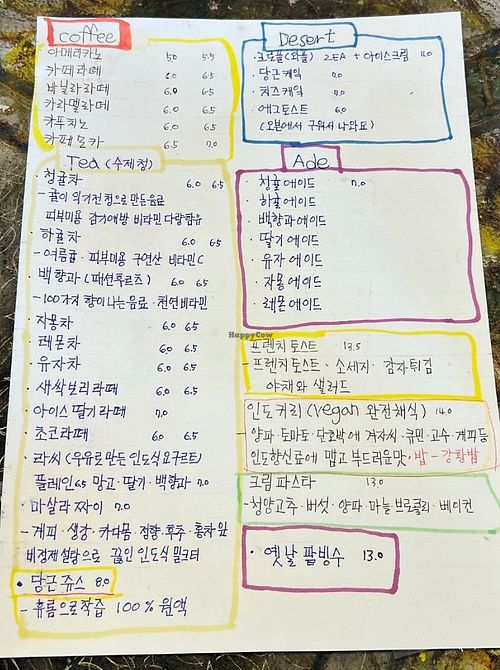 coffee
아메리카노 5.0 5.5
카페라떼 6.0 6.5
바닐라라떼 6.0 6.5
카라멜라떼 6.0 6.5
카푸치노 6.0 6.5
카페모카 6.5 7.0
Tea (수제청)
· 청귤차 6.0 6.5
- 귤이 익기전 청으로 만든음료
피부미용 감기예방 비타민 다량함유
· 하귤차 6.0 6.5
- 여름귤 · 피부미용 구연산 비타민C
· 백향과 (패션후르츠) 6.0 6.5
- 100가지 향이나는음료 · 천연비타민
· 자몽차 6.0 6.5
· 레몬차 6.0 6.5
· 유자차 6.0 6.5
· 새싹보리라떼 6.0 6.5
· 아이스 딸기라떼 7.0
· 초코라떼 6.0 6.5
· 라씨 (우유로만든 인도식요구르트)
플레인 6.5 망고 · 딸기 · 백향과 7.0
· 마살라 짜이 7.0
- 계피 · 생강 · 카다몸 · 정향 · 후추 · 홍차잎
비정제설탕으로 끓인 인도식 밀크티
· 당근 쥬스 8.0
- 휴롬으로착즙 100% 원액
Desert
· 크로플(와플) 2EA + 아이스크림 11.0
· 당근케익 7.0
· 치즈케익 7.0
· 에그토스트 6.0
(오븐에서 구워서 나와요)
Ade
· 청귤에이드 7.0
· 하귤에이드
· 백향과에이드
· 딸기에이드
· 유자에이드
· 자몽에이드
· 레몬에이드
프렌치토스트 13.5
- 프렌치토스트 · 소세지 · 감자튀김
야채와 샐러드
인도커리 (Vegan 완전채식) 14.0
양파 · 토마토 · 단호박에 겨자씨 · 큐민 · 고수 · 계피등
인도향신료에 맵고 부드러운맛 · 밥 - 강황밥
크림파스타 13.0
- 청양고추 · 버섯 · 양파 · 마늘 브로콜리 · 베이컨
· 옛날 팥빙수 13.0
HappyCow